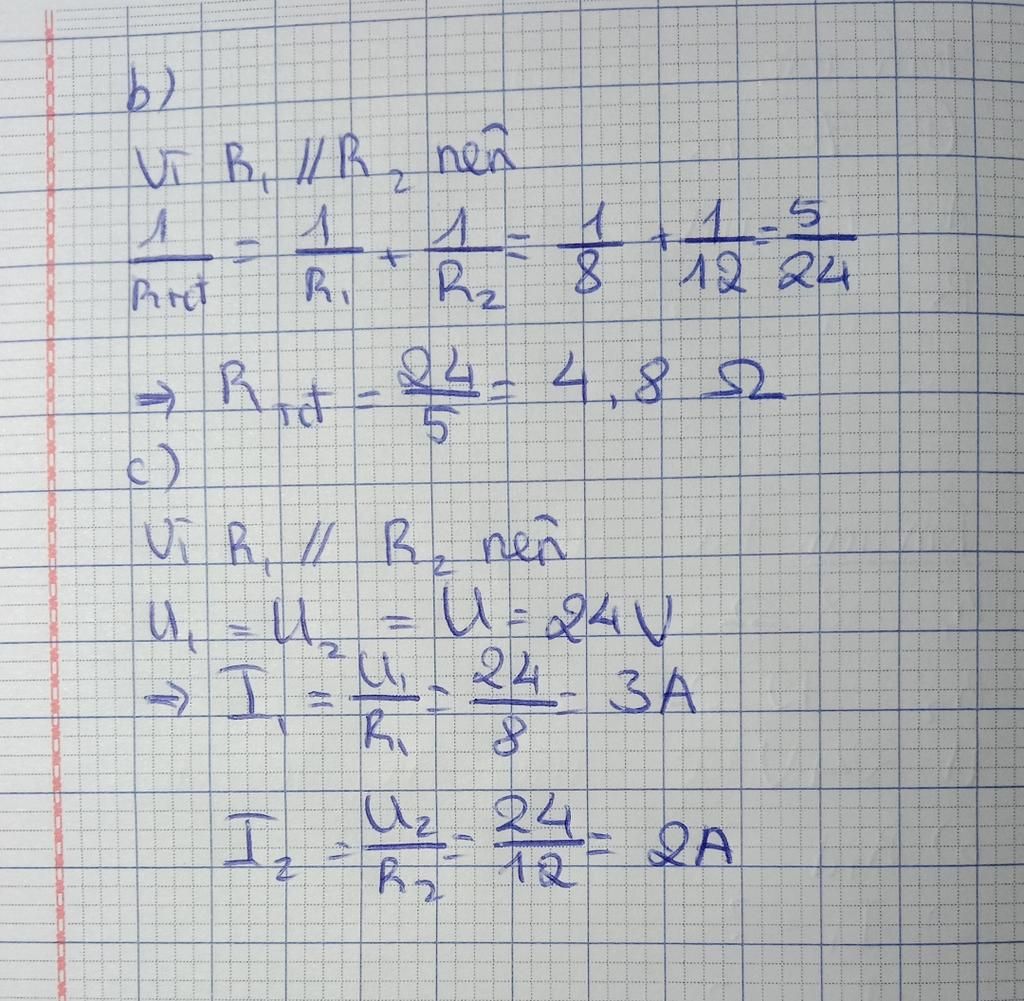 b)
Vì R₁ // R₂ nên
1/Rtđ = 1/R₁ + 1/R₂ = 1/8 + 1/12 = 5/24
⇒ Rtđ = 24/5 = 4,8 Ω
c)
Vì R₁ // R₂ nên
U₁ = U₂ = U = 24V
⇒ I₁ = U₁/R₁ = 24/8 = 3A
I₂ = U₂/R₂ = 24/12 = 2A